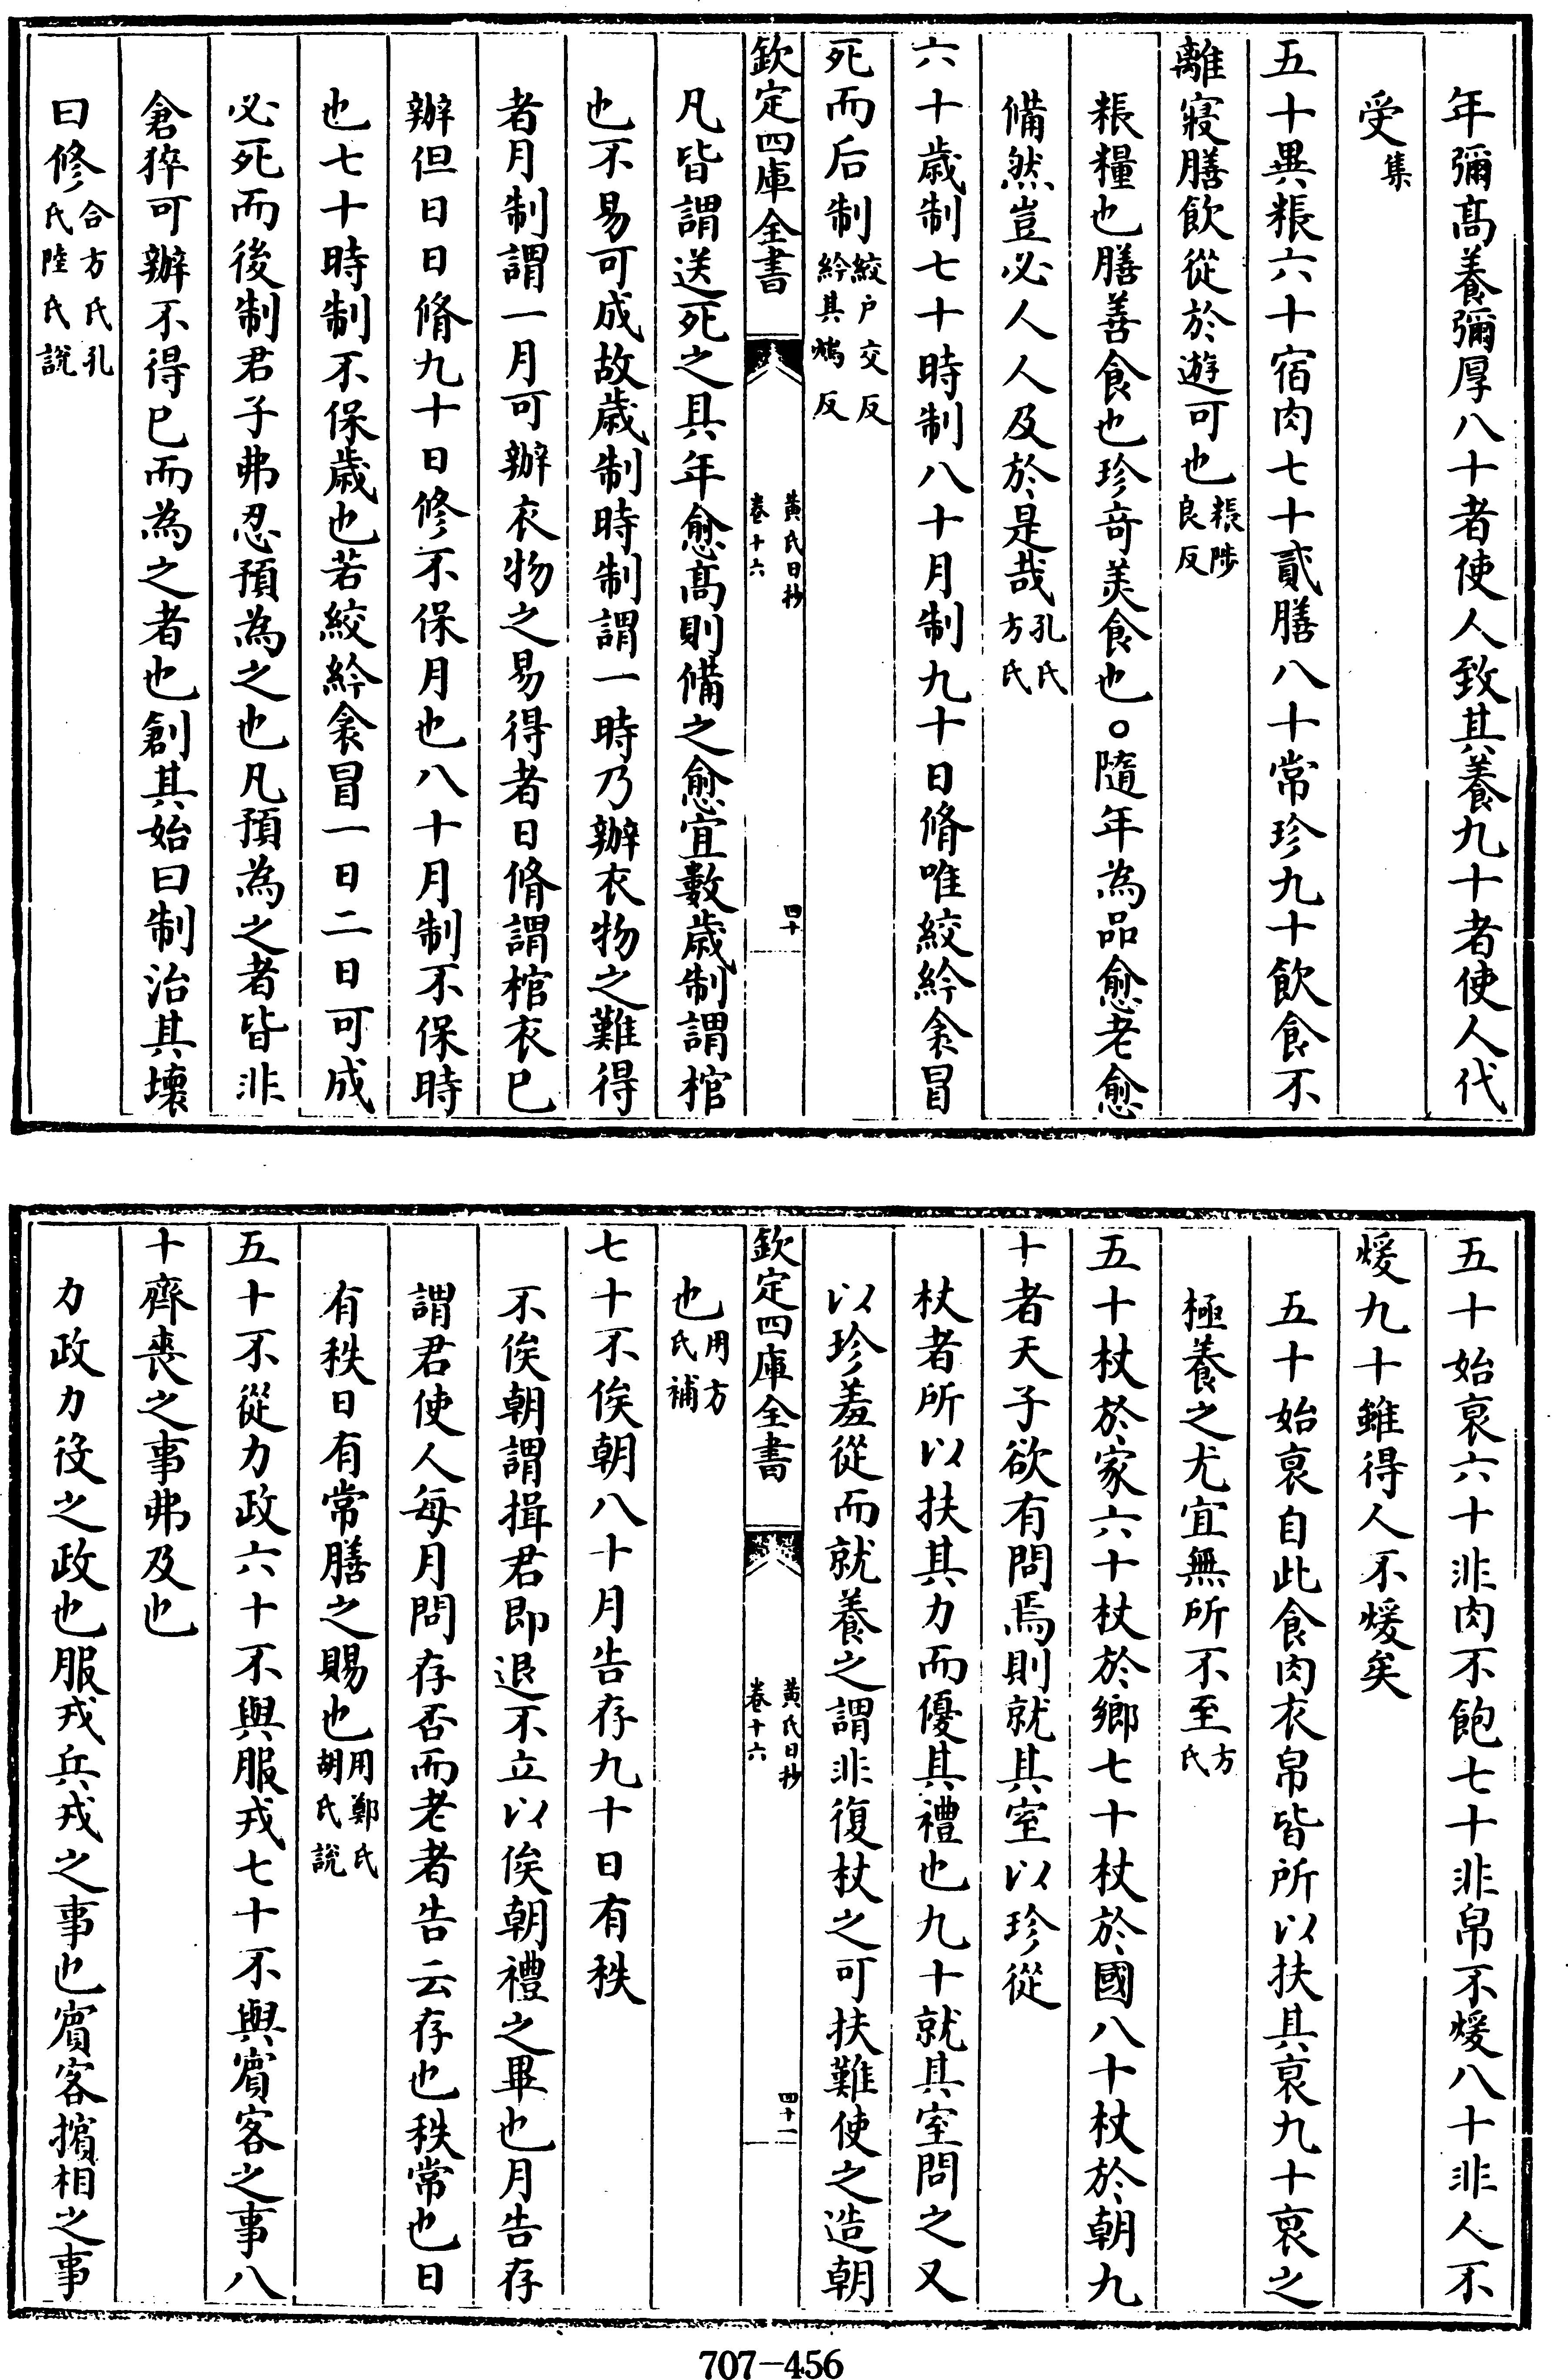 年彌髙養彌厚八十者使人致其養九十者使人代
受集
五十異粻六十宿肉七十貳膳八十常珍九十飲食不
離寢膳飲從於遊可也粻陟良反
粻糧也膳善食也珍竒美食也○隨年為品愈老愈
備然豈必人人及於是哉孔氏方氏
六十歳制七十時制八十月制九十日脩唯絞紟衾冒
死而后制絞户交反紟其鴆反
欽定四庫全書
黄氏日抄
卷十六
四十
凡皆謂送死之具年愈髙則備之愈宜數歳制謂棺
也不易可成故歳制時制謂一時乃辦衣物之難得
者月制謂一月可辦衣物之易得者日脩謂棺衣已
辦但日日脩九十日修不保月也八十月制不保時
也七十時制不保歳也若絞紟衾冒一日二日可成
必死而後制君子弗忍預為之也凡預為之者皆非
倉猝可辦不得已而為之者也創其始曰制治其壞
曰修合方氏孔氏陸氏說
五十始衰六十非肉不飽七十非帛不煖八十非人不
煖九十雖得人不煖矣
五十始衰自此食肉衣帛皆所以扶其衰九十衰之
極養之尤宜無所不至方氏
五十杖於家六十杖於鄉七十杖於國八十杖於朝九
十者天子欲有問焉則就其室以珍從
杖者所以扶其力而優其禮也九十就其室問之又
以珍羞從而就養之謂非復杖之可扶難使之造朝
欽定四庫全書
黄氏日抄
卷十六
四十一
也用方氏補
七十不俟朝八十月告存九十日有秩
不俟朝謂揖君即退不立以俟朝禮之畢也月告存
謂君使人每月問存否而老者告云存也秩常也日
有秩日有常膳之賜也用鄭氏胡氏說
五十不從力政六十不與服戎七十不與賓客之事八
十齊喪之事弗及也
力政力役之政也服戎兵戎之事也賓客擯相之事
707-456